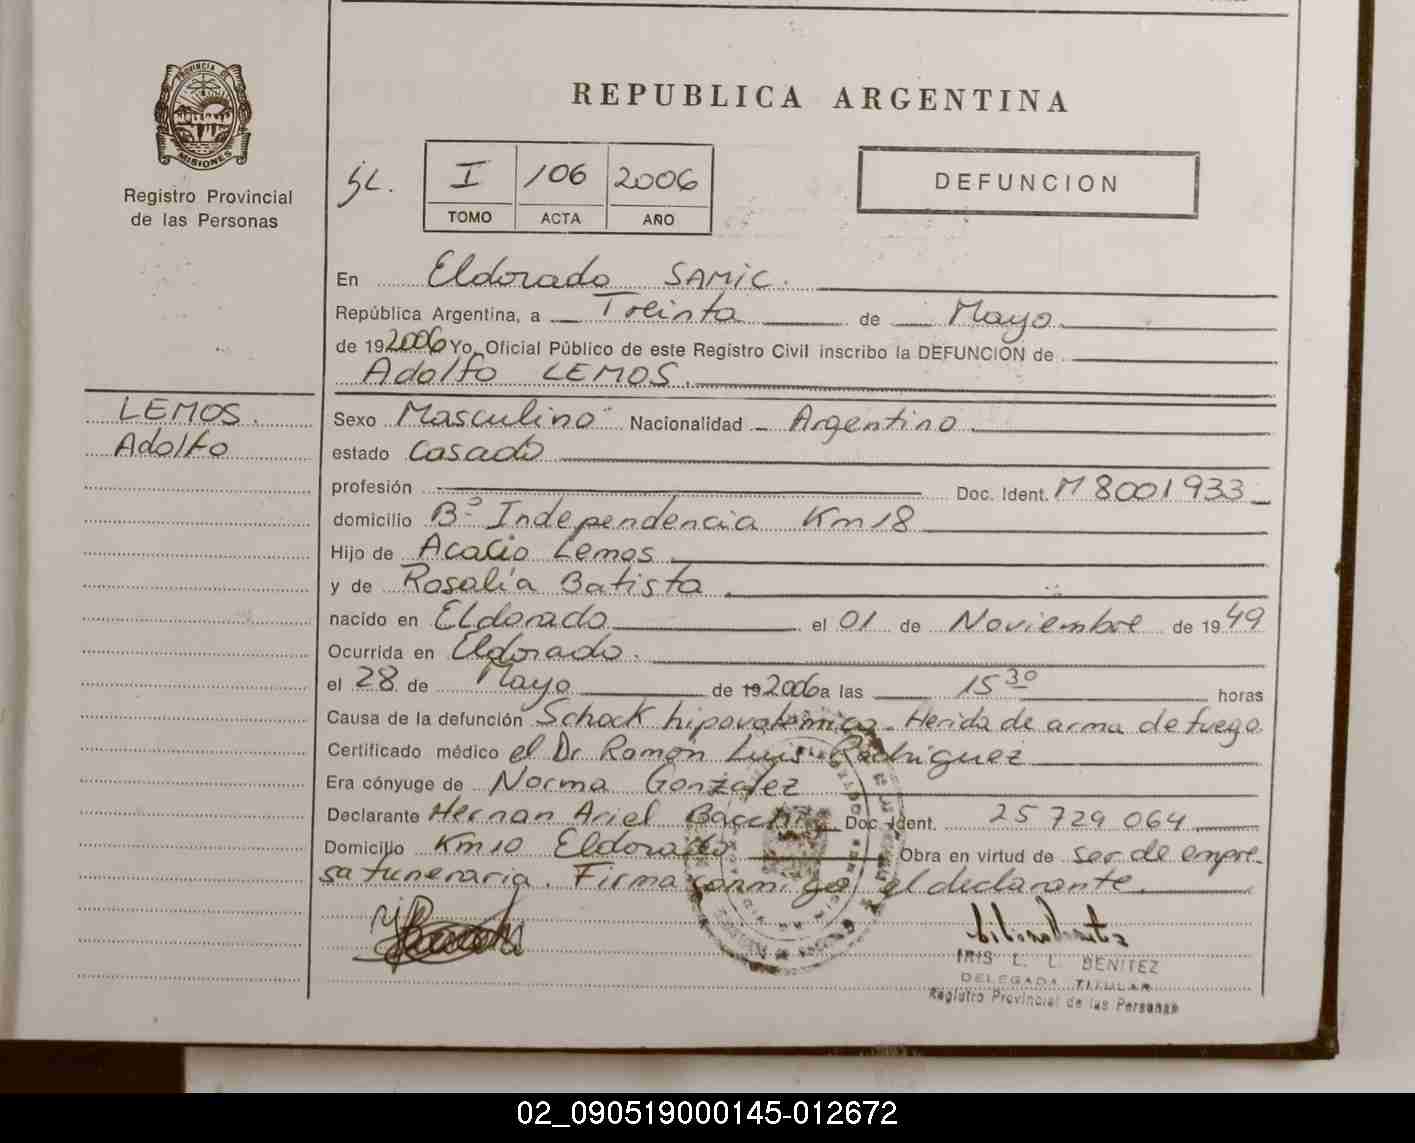 REPUBLICA ARGENTINA
PROVINCIA DE
MISIONES
Registro Provincial
de las Personas
I 106 2006
TOMO ACTA AÑO
DEFUNCION
En Eldorado SAMIC.
República Argentina, a Treinta de Mayo
de 192006 Yo, Oficial Público de este Registro Civil inscribo la DEFUNCION de
Adolfo LEMOS.
LEMOS.
Adolfo
Sexo Masculino Nacionalidad Argentino
estado Casado
profesión Doc. Ident. M 8001933
domicilio Bº Independencia Km 18
Hijo de Acacio Lemos
y de Rosalía Batista
nacido en Eldorado el 01 de Noviembre de 1949
Ocurrida en Eldorado.
el 28 de Mayo de 192006 a las 15 30 horas
Causa de la defunción Schock hipovolemico - Herida de arma de fuego
Certificado médico el Dr Ramon Luis Rodriguez
Era cónyuge de Norma Gonzalez
Declarante Hernan Ariel Doc. Ident. 25 729 064
Domicilio Km 10 Eldorado Obra en virtud de ser de empre-
sa funeraria. Firma conmigo el declarante.
IRIS L. L. BENITEZ
DELEGADA TITULAR
Registro Provincial de las Personas
02_090519000145-012672